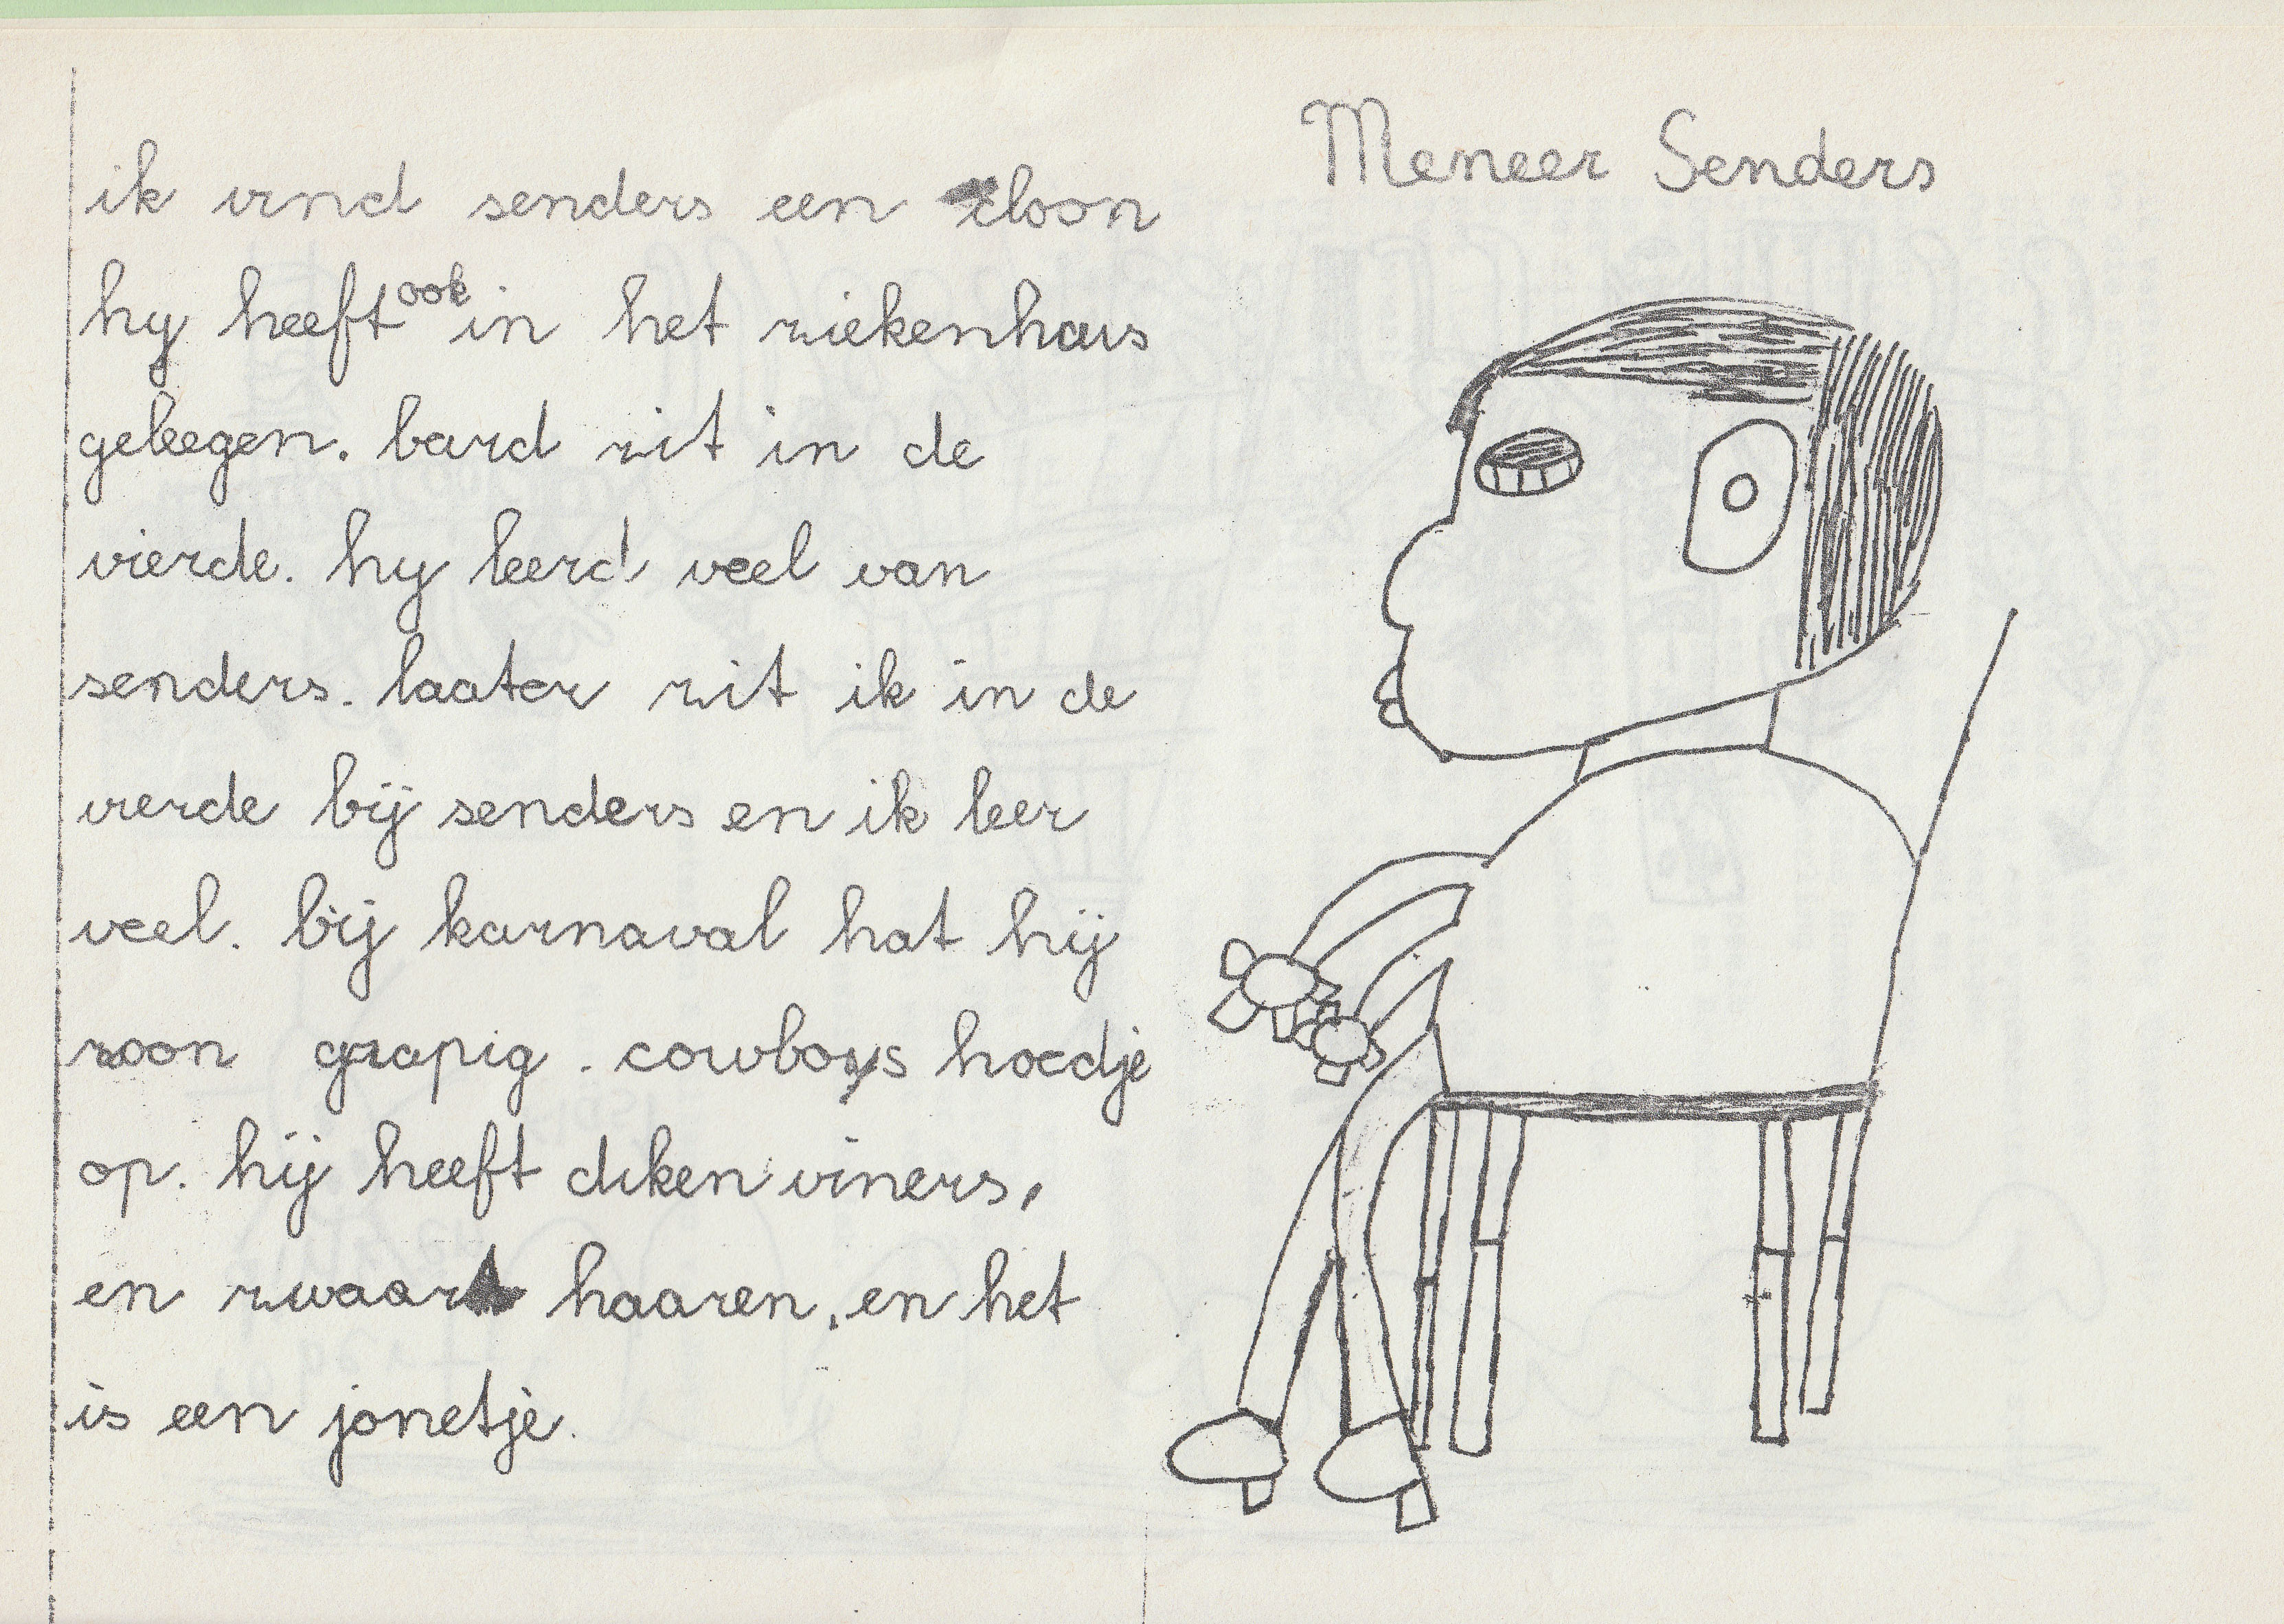 Meneer Senders
ik vind senders een cloon
hy heeft ook in het ziekenhuis
geleegen. bard zit in de
vierde. hy leerd veel van
senders. laater zit ik in de
vierde bij senders en ik leer
veel. bij karnaval hat hij
zoon grapig. cowboys hoedje
op. hij heeft diken viners,
en zwaart haaren, en het
is een jonetje.